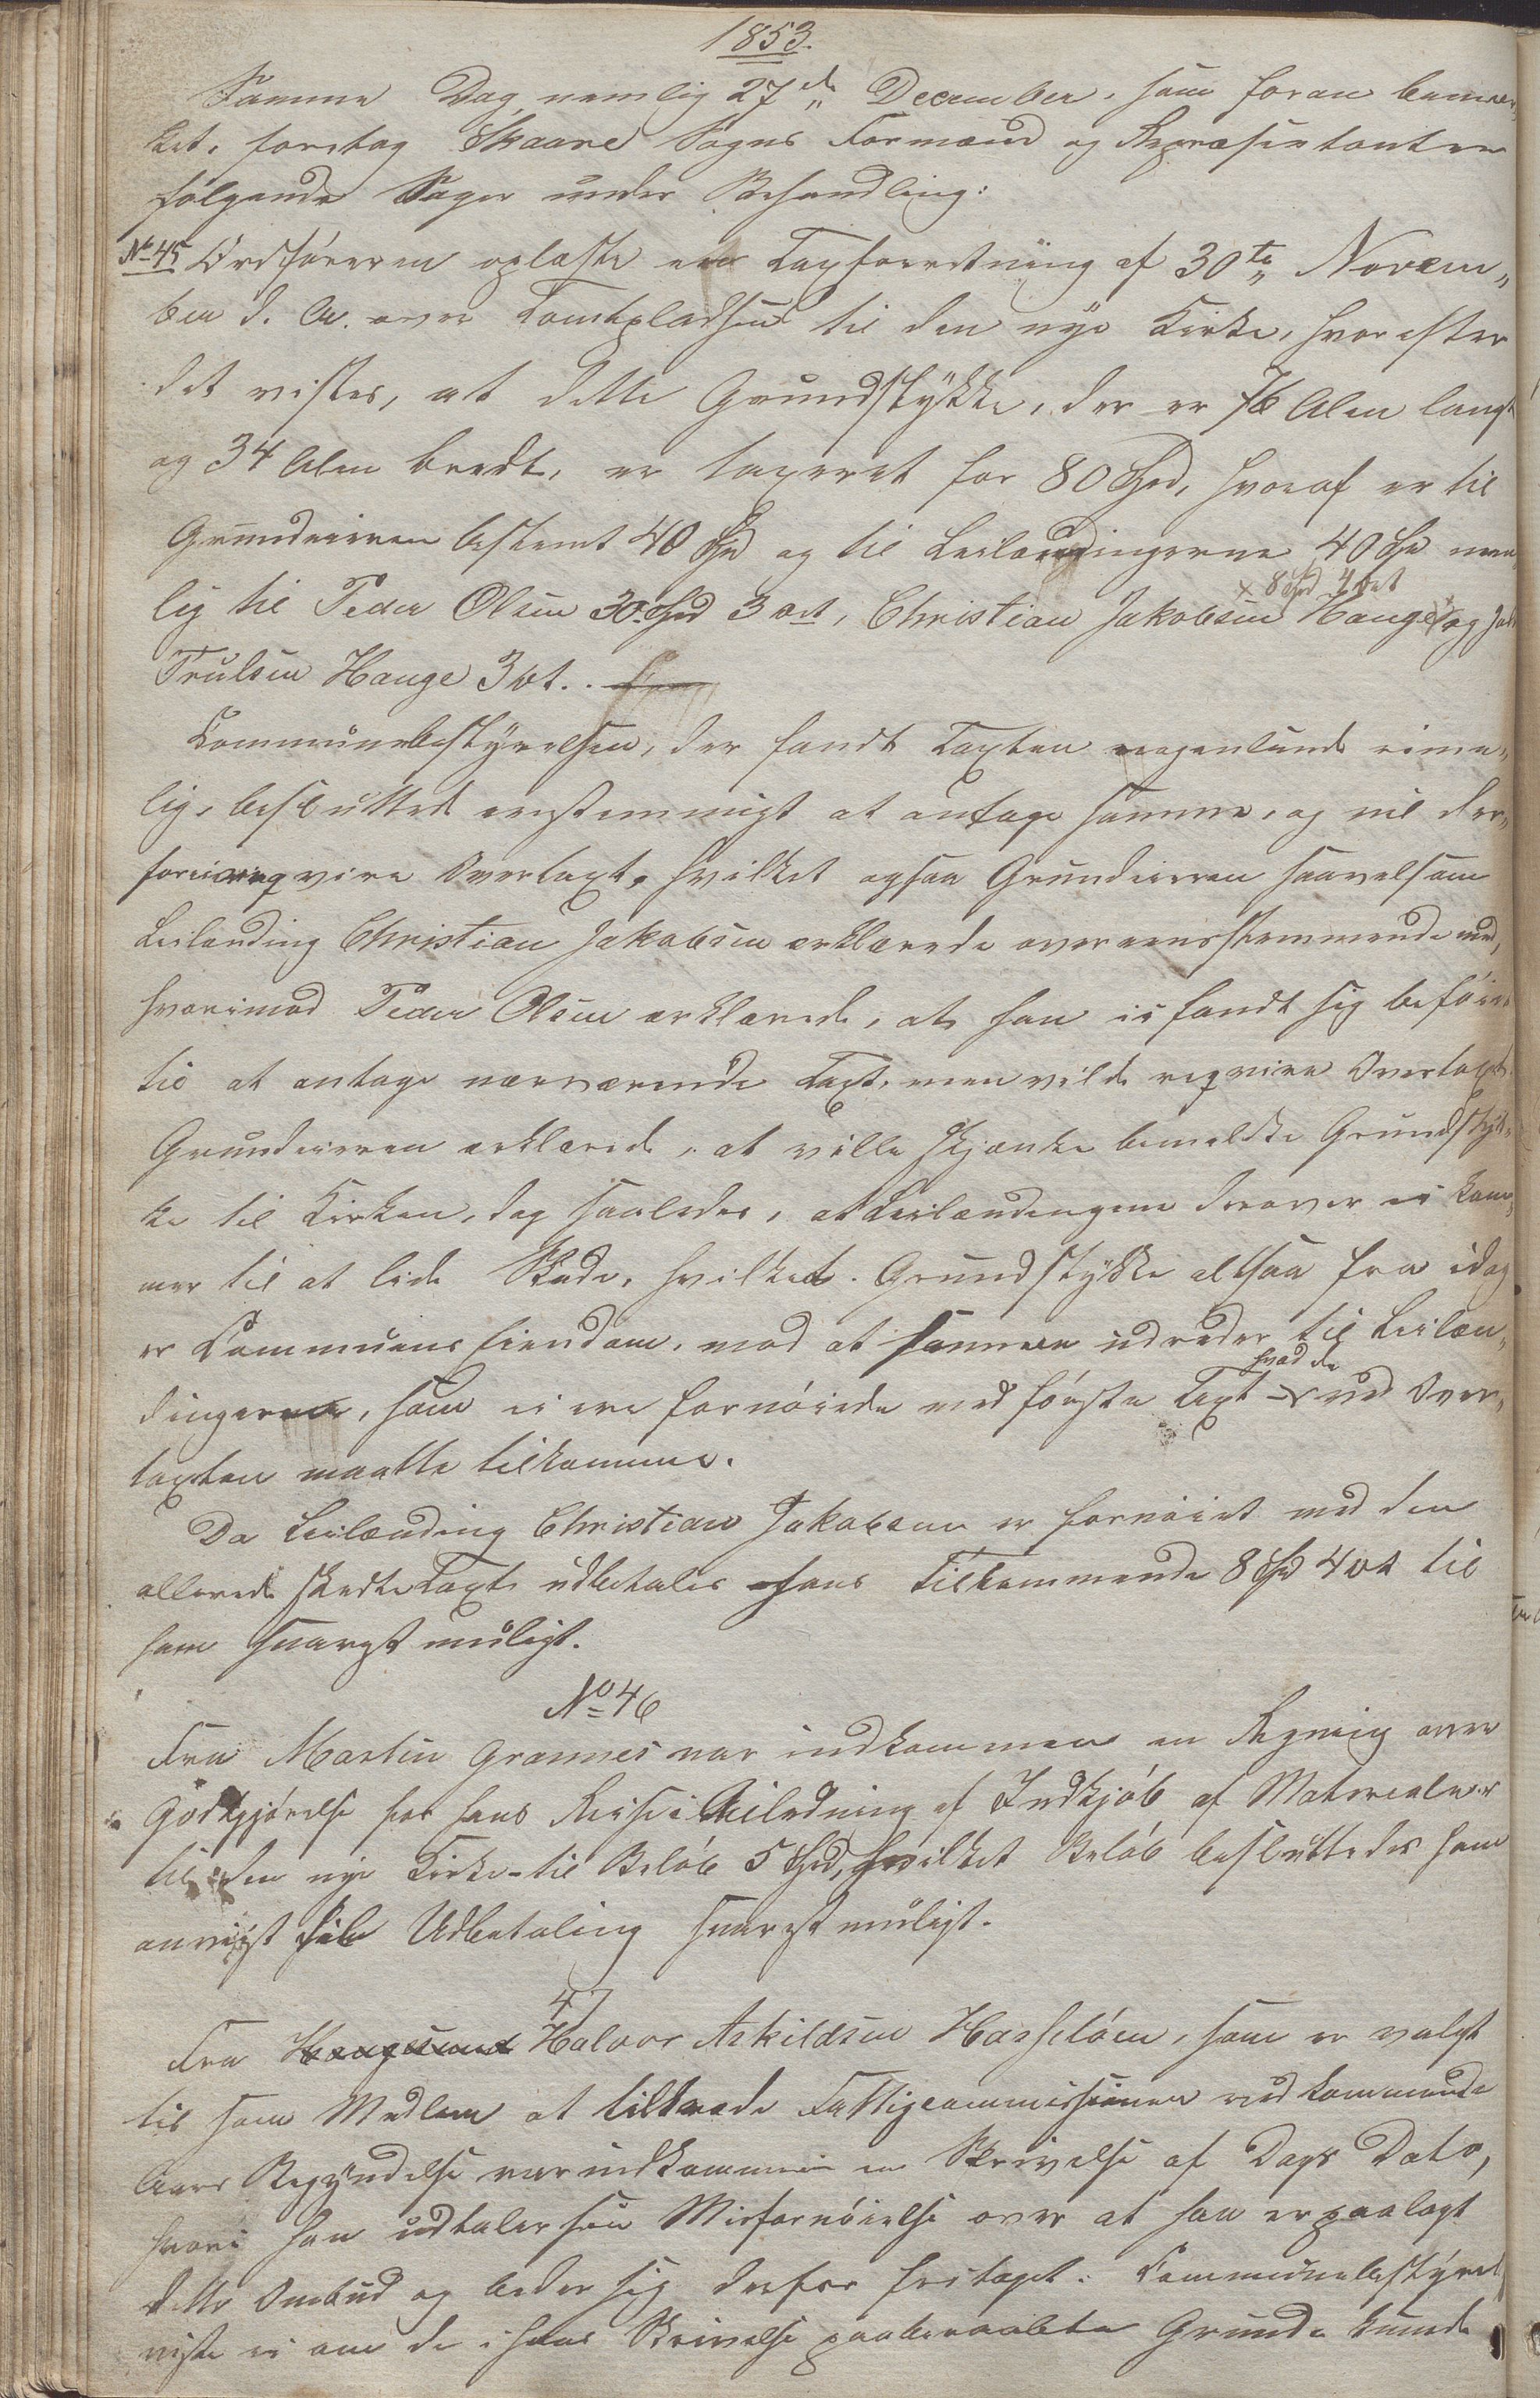 1853.
Samme Dag nemlig 27de December, som foran bemær¬
ket, foretog Skaare Sogns Formænd og Repræsentanter
følgende Sager under Behandling:
No 45 Ordføreren oplæste en Taxforretning af 30te Novem¬
ber d. A. over Tomtepladsen til den nye Kirke, hvorefter
det vistes, at dette Grundstykke, der er 76 Alen langt
og 34 Alen bredt, er taxeret for 80 Spd, hvoraf er til
Grundeieren bestemt 40 Spd og til Leilændingerne 40 Spd nem¬
lig til Peder Olsen 30 Spd 3 ort, Christian Jakobsen Hauge x 8 Spd 4 ort og
Trulsen Hauge 3 ort.
Communebestyrelsen, der fandt Taxten nogenlunde rime¬
lig, besluttede enstemmigt at antage samme, og vil der¬
for ei reqvirere Overtaxt, hvilket ogsaa Grundeieren saavelsom
Leilænding Christian Jakobsen erklærede overeensstemmende med,
hvorimod Peder Olsen erklærede, at han ei fandt sig beføiet
til at antage nærværende Taxt, men vilde reqvirere Overtaxt.
Grundeieren erklærede, at ville skjænke bemeldte Grundstyk¬
ke til Kirken, dog saaledes, at Leilændingene derover ei kom¬
mer til at lide Skade, hvilket Grundstykke altsaa fra idag
er Communens Eiendom, mod at samme udreder til Leilæn¬
dingerne, som ei ere fornøiede med første Taxt hvad de ved Over¬
taxten maatte tilkomme.
Da Leilænding Christian Jakobsen er fornøiet med den
allerede skedte Taxt, udbetales hans Tilkommende 8 Spd 4 ort til
ham snarest muligt.
No 46
Fra Martin Grannes var indkommen en Regning over
Godtgjørelse for hans Reise i Anledning af Indkjøb af Materialer
til den nye Kirke til Beløb 5 Spd, hvilket Beløb besluttedes ham
anvist til Udbetaling snarest muligt.
47
Fra Halvor Askildsen Hasseløen, som er valgt
til som Medlem at tiltræde Fattigcommissionen ved kommende
Aars Begyndelse var indkommen en Skrivelse af Dags Dato,
hvori han udtaler sin Misfornøielse over at han er paalagt
dette Ombud og beder sig derfor fritaget. Communebestyrel
viste ei om de i hans Skrivelse paaberaabte Grunde kunde